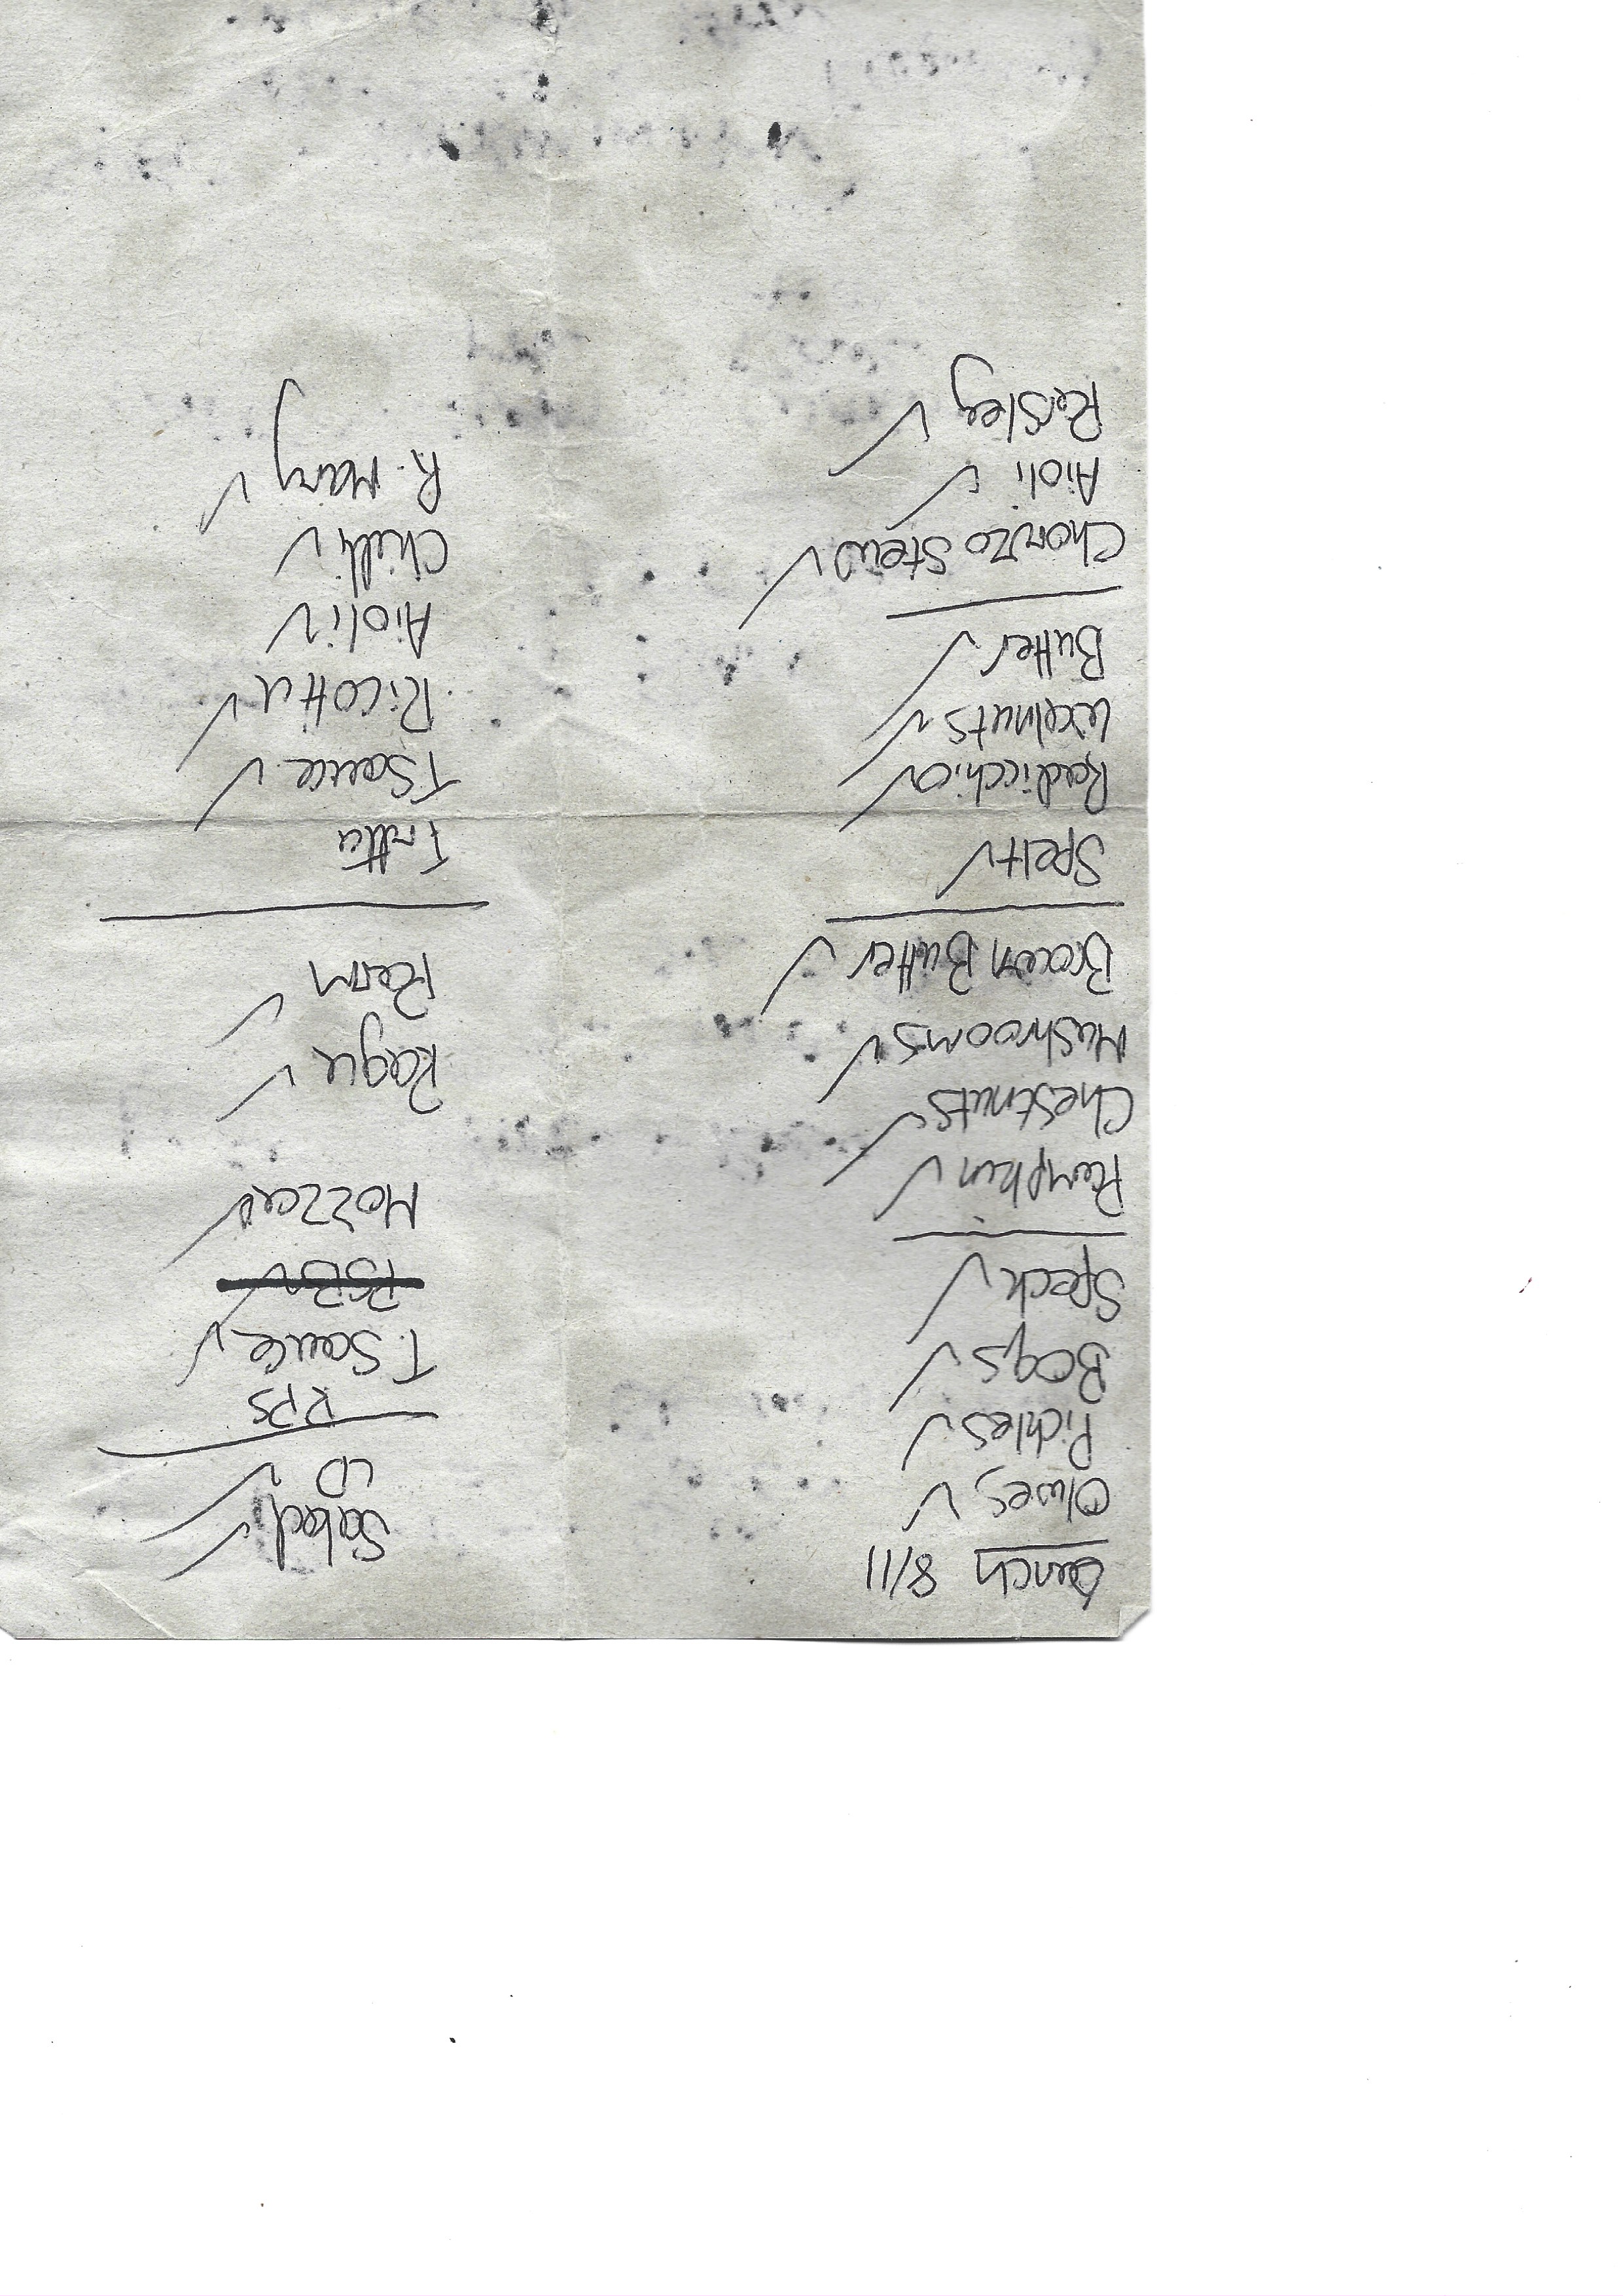 Lunch 8/11
Olives ✓
Pickles ✓
Bags ✓
Speck ✓
Pumpkin ✓
Chestnuts ✓
Mushrooms ✓
Brown Butter ✓
Spelt ✓
Radicchio ✓
Walnuts ✓
Butter ✓
Chorizo Stew ✓
Aioli ✓
Parsley ✓
Salad ✓
LD ✓
RPS
T. Sauce ✓
PSB ✓
Mozza ✓
Ragu ✓
Parm ✓
Fritta
T Sauce ✓
Ricotta ✓
Aioli ✓
Chilli ✓
R. Mary ✓